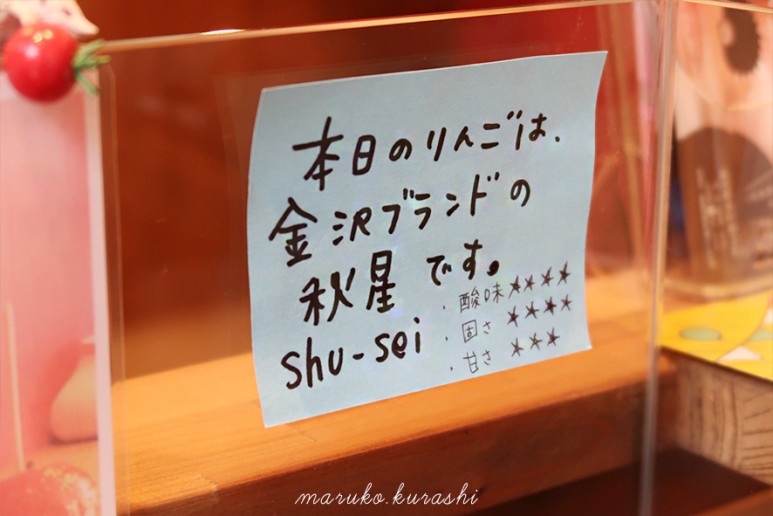 本日のりんごは、
金沢ブランドの
秋星です。
shu-sei
・酸味★★★★
・固さ★★★★
・甘さ★★★
maruko.kurashi